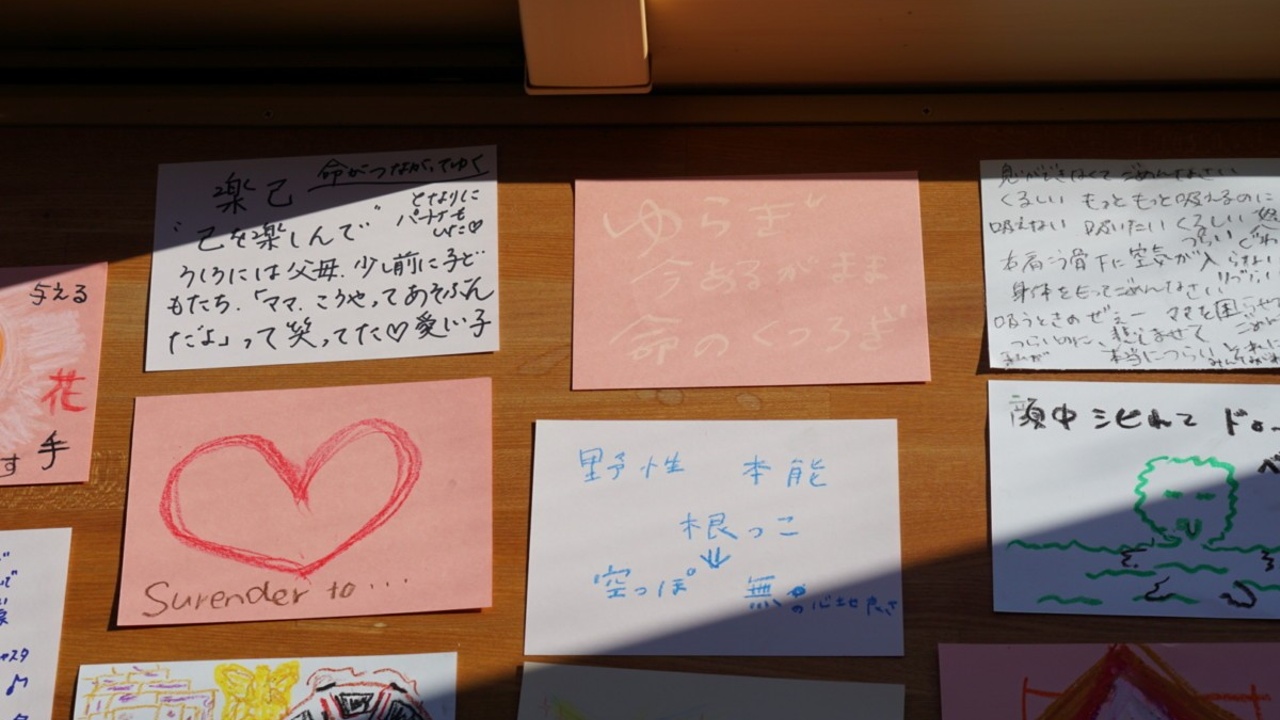 与える
花
す手
命がつながってゆく
楽己
となりに
パートナーも
"己を楽しんで"
うしろには父母、少し前に子ど
もたち、「ママ、こうやってあそぶん
だよ」って笑ってた♡愛しい子
Surender to・・・
ゆらぎ
今あるがまま
命のくつろぎ
野性 本能
根っこ
空っぽ 無
の心地良さ
息ができなくてごめんなさい
くるしい もっともっと吸えるのに
吸えない 吸いたい くるしい
つらい
右肩こう骨下に空気が入らない
身体をもってごめんなさい
吸うときのぜぇー ママを困らせ
つらいのに、悲しませて
本当につらい
顔中シビれて